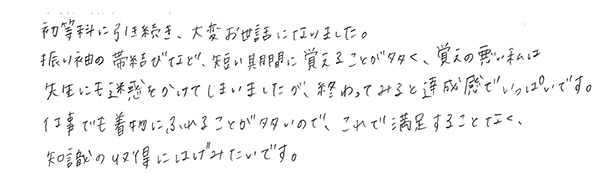 初等科に引き続き、大変お世話になりました。
振り袖の帯結びなど、短い期間に覚えることが多く、覚えの悪い私は
先生にも迷惑をかけてしまいましたが、終わってみると達成感でいっぱいです。
仕事でも着物にふれることが多いので、これで満足することなく、
知識の収得にはげみたいです。